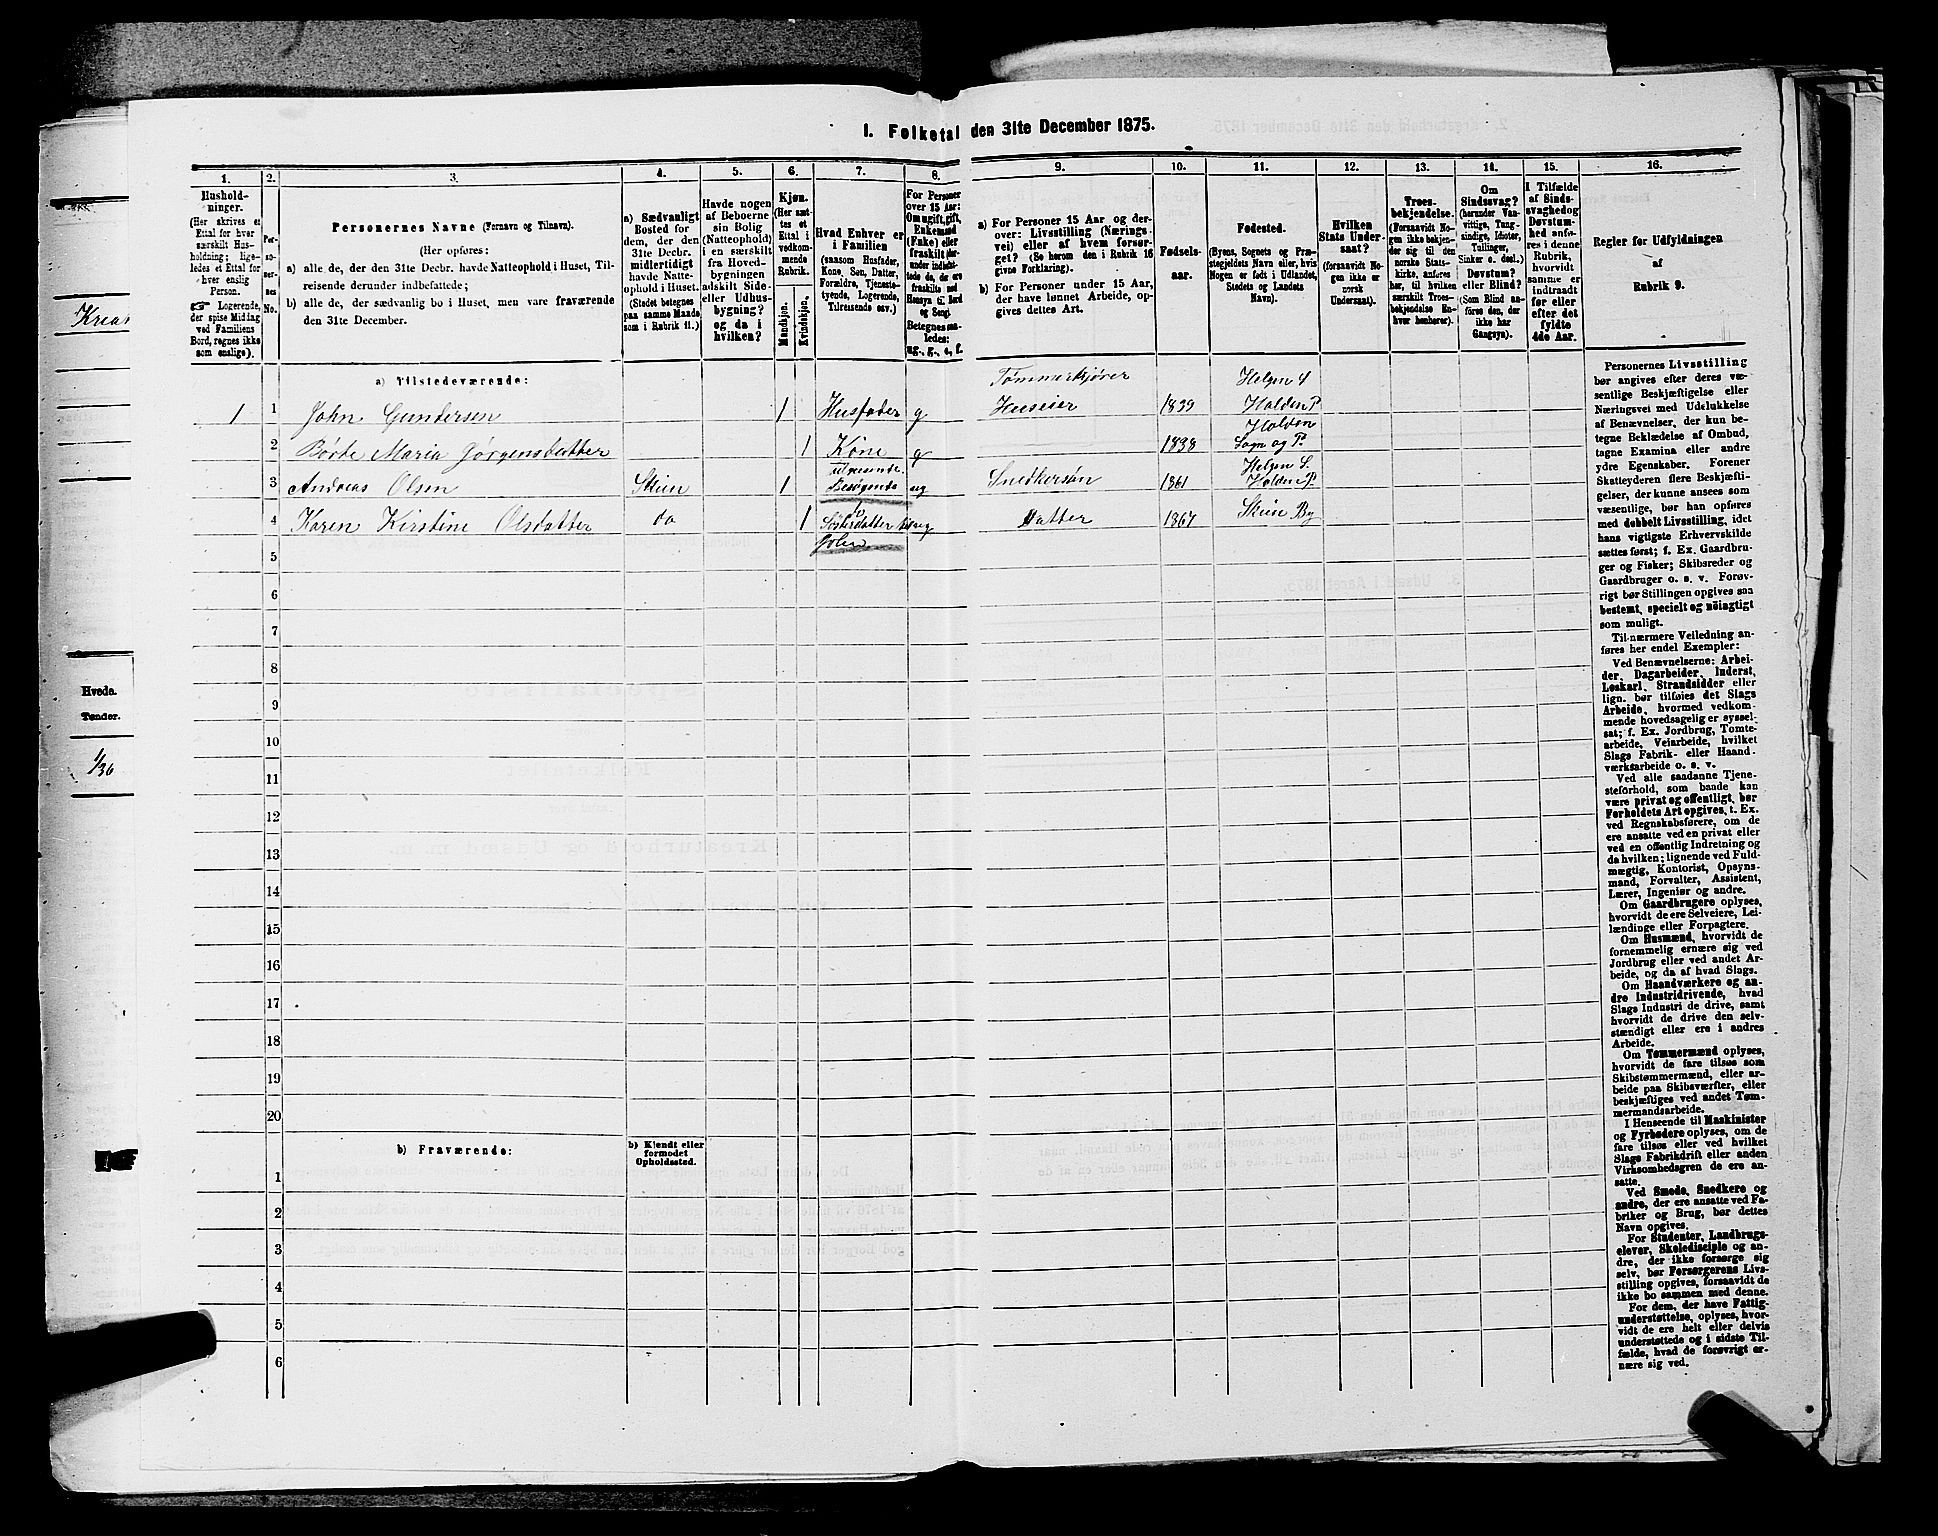 I. Folketal den 31te December 1875.
1.
2.
3.
4.
5.
6.
7.
8.
9.
10.
11.
12.
13.
14.
15.
16.
Hushold-
ninger.
(Her skrives et
Ettal for hver
særskilt Hus-
holdning; lige-
ledes et Ettal for
hver enslig
Person.
☞ Logerende,
der spise Middag
ved Familiens
Bord, regnes ikke
som enslige).
Per-
so-
ner-
nes
No.
Personernes Navne (Fornavn og Tilnavn).
(Her opføres:
a) alle de, der den 31te Decbr. havde Natteophold i Huset, Til-
reisende derunder indbefattede;
b) alle de, der sædvanlig bo i Huset, men vare fraværende
den 31te December.
a) Sædvanligt
Bosted for
dem, der den
31te Decbr.
midlertidigt
havde Natte-
ophold i Huset.
(Stedet betegnes
paa samme Maade
som i Rubrik 11.)
Havde nogen
af Beboerne
sin Bolig
(Natteophold)
i en særskilt
fra Hoved-
bygningen
adskilt Side-
eller Udhus-
bygning?
og da i
hvilken?
Kjøn.
(Her sæt-
tes et
Ettal i
vedkom-
mende
Rubrik.
Mandkjøn.
Kvindekjøn.
Hvad Enhver er
i Familien
(saasom Husfader,
Kone, Søn, Datter,
Forældre, Tjeneste-
tyende, Logerende,
Tilreisende osv.)
For Personer
over 15 Aar:
Om ugift, gift,
Enkemand
(Enke) eller
fraskilt
Betegnes saa-
ledes:
ug., g., e, f.
a) For Personer 15 Aar og der-
over: Livsstilling (Nærings-
vei) eller af hvem forsør-
get? (Se herom den i Rubrik 16
givne Forklaring).
b) For Personer under 15 Aar,
der have lønnet Arbeide, op-
gives dettes Art.
Fødsels-
aar.
Fødested.
(Byens, Sognets og Præ-
stegjeldets Navn eller, hvis
Nogen er født i Udlandet,
Stedets og Landets
Navn).
Hvilken
Stats Under-
saat?
(forsaavidt No-
gen ikke er
norsk
Undersaat).
Troes-
bekjendelse.
(Forsaavidt No-
gen ikke bekjen-
der sig til den
norske Stats-
kirke, anføres
her, til hvilken
særskilt Troes-
bekjendelse En-
hver henhører).
Om
Sindssvag?
(herunder Van-
vittige, Tung-
sindige, Idioter,
Tullinger,
Sinker o. desl.)
Døvstum?
eller Blind?
(Som Blind an-
føres den, der
ikke har
Gangsyn).
I Tilfælde
af Sinds-
svaghed og
Døvstum-
hed anfø-
res i denne
Rubrik,
hvorvidt
samme er
indtraadt
før eller
efter det
fyldte
4de Aar.
Regler for Udfyldningen
af
Rubrik 9.
a) Tilstedeværende:
1 1 John Gundersen 1 Husfader g Tømmerkjører Huseier 1839 Helgen S Holden P
2 Börte Maria Jørgensdatter 1 Kone g 1838 Holden Sogn og P.
3 Andreas Olsen Skien 1 Besøgende ug Snedkersøn 1861 Helgen S. Holden P
4 Karen Kirstine Olsdatter do 1 Datter 1867 Skien By
5
6
7
8
9
10
11
12
13
14
15
16
17
18
19
20
b) Fraværende:
b) Kjendt eller
formodet
Opholdssted.
1
2
3
4
5
6
Personernes Livsstilling
bør angives efter deres væ-
sentlige Beskjæftigelse eller
Næringsvei med Udelukkelse
af Benævnelser, der kun be-
tegne Beklædelse af Ombud,
tagne Examina eller andre
ydre Egenskaber. Forener
Skatteyderen flere Beskjæfti-
gelser, der kunne ansees som
væsentlige, bør han opføres
med dobbelt Livsstilling, idet
hans vigtigste Erhvervskilde
sættes først; f. Ex. Gaardbru-
ger og Fisker; Skibsreder og
Gaardbruger o. s. v. Forøv-
rigt bør Stillingen opgives saa
bestemt, specielt og nöiagtigt
som muligt.
Til nærmere Veiledning an-
føres her endel Exempler:
Ved Benævnelserne: Arbei-
der, Dagarbeider, Inderst,
Løskarl, Strandsidder eller
lign. bør tilføies det Slags
Arbeide, hvormed vedkom-
mende hovedsagelig er syssel-
sat; f. Ex. Jordbrug, Tomte-
arbeide, Veiarbeide, hvilket
Slags Fabrik- eller Haand-
værksarbeide o. s. v.
Ved alle saadanne Tjene-
steforhold, som baade kan
være privat og offentligt, bør
Forholdets Art opgives, t. Ex.
ved Regnskabsførere, om de
ere ansatte ved en privat eller
ved en offentlig Indretning og
da hvilken; lignende ved Fuld-
mægtig, Kontorist, Opsyns-
mand, Forvalter, Assistent,
Lærer, Ingeniør og andre.
Om Gaardbrugere oplyses,
hvorvidt de ere Selveiere, Lei-
lændinge eller Forpagtere.
Om Husmænd, hvorvidt de
fornemmelig ernære sig ved
Jordbrug eller ved andet Ar-
beide, og da af hvad Slags.
Om Haandværkere og an-
dre Industridrivende, hvad
Slags Industri de drive, samt
hvorvidt de drive den selv-
stændigt eller ere i andres
Arbeide.
Om Tømmermænd oplyses,
hvorvidt de fare tilsøs som
Skibstømmermænd, eller ar-
beide paa Skibsværfter, eller
beskjæftiges ved andet Tøm-
mermandsarbeide.
I Henseende til Maskinister
og Fyrbødere oplyses, om de
fare tilsøs eller ved hvilket
Slags Fabrikdrift eller anden
Virksomhedsgren de ere an-
satte.
Ved Smede, Snedkere og
andre, der ere ansatte ved Fa-
briker og Brug, bør dettes
Navn opgives.
For Studenter, Landbrugs-
elever, Skoledisciple og an-
dre, der ikke forsørge sig
selv, bør Forsørgerens Livs-
stilling opgives, forsaavidt de
ikke bo sammen med denne.
For dem, der have Fattig-
understøttelse, oplyses, hvor-
vidt de ere helt eller delvis
understøttede og i sidste Til-
fælde, hvad de forøvrigt er-
nære sig ved.
Hvede.
Tønder.
1/36